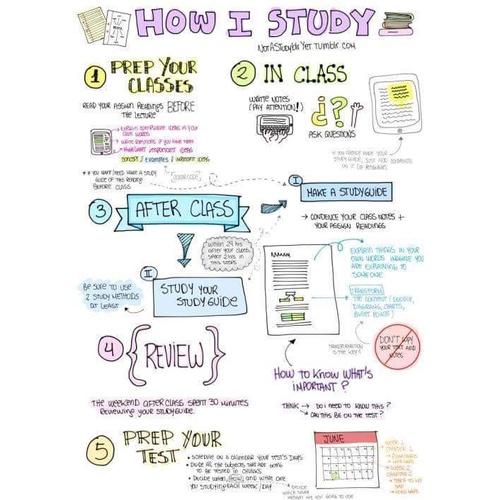 HOW I STUDY
NOTASTUDYBLRYET.TUMBLR.COM
1 PREP YOUR
CLASSES
READ YOUR ASSIGN READINGS BEFORE
THE LECTURE
EXPLAIN COMPLICATED IDEAS IN YOUR
OWN WORDS
WRITE QUESTIONS IF YOU HAVE THEM
HIGHLIGHT IMPORTANT IDEAS
CONCEPT / EXAMPLES / IMPORTANT IDEAS
* IF YOU HAVE/NEED MAKE A STUDY
GUIDE OF THIS READING
BEFORE CLASS
2 IN CLASS
WRITE NOTES
(PAY ATTENTION!)
¿?
ASK QUESTIONS
IF YOU ALREADY MADE YOUR
STUDY GUIDE, JUST ADD COMMENTS
ON IT OR
3 AFTER CLASS
I
MAKE A STUDYGUIDE
→ CONDENSE YOUR CLASS NOTES +
YOUR ASSIGN READINGS
WITHIN 24 HRS
AFTER YOUR CLASS,
SPENT 2 HRS IN
THIS STEPS
BE SURE TO USE
2 STUDY METHODS
AT LEAST
II
STUDY YOUR
STUDYGUIDE
EXPLAIN THINGS IN YOUR
OWN WORDS, IMAGINE YOU
ARE EXPLAINING TO
SOMEONE
TRANSFORM
THE CONTENT (DOODLE,
DIAGRAMS, CHARTS,
BULLET POINTS)
TRANSFORMATION
IS THE KEY!
DON'T COPY
YOUR TEXT AND
NOTES
4 {REVIEW}
THE WEEKEND AFTER CLASS SPENT 30 MINUTES
REVIEWING YOUR STUDYGUIDE.
HOW TO KNOW WHAT'S
IMPORTANT?
THINK → DO I NEED TO KNOW THIS?
CAN THIS BE ON THE TEST?
5 PREP YOUR
TEST
• SCHEDULE ON A CALENDAR YOUR TEST'S DAYS
• DIVIDE ALL THE SUBJECTS THAT ARE GOING
TO BE TESTED IN CHUNKS
• DECIDE WHEN, HOW, AND WHAT ARE
YOU STUDYING EACH WEEK / DAY
JUNE
WEEK 1
CHAPTER 1
WEEK 2
CHAPTER 2